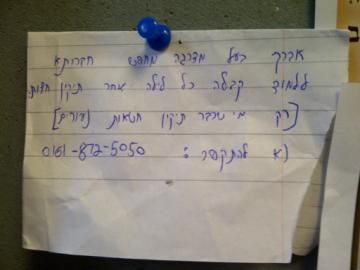 אברך בעל מדרגה מחפש חברותא
ללמוד קבלה כל לילה אחר תיקון חצות.
[רק מי שכבר תיקון חטאות נעורים]
נא להתקשר : 0161-872-5050